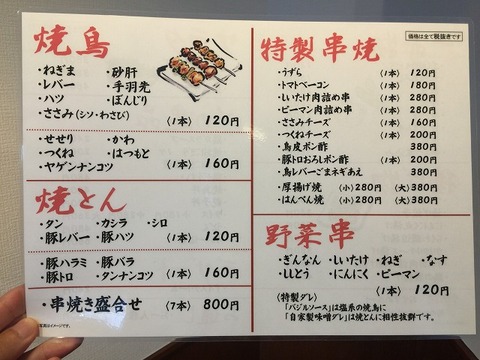 焼鳥
・ねぎま ・砂肝
・レバー ・手羽先
・ハツ ・ぼんじり
・ささみ(シソ・わさび) 〈1本〉 120円
・せせり ・かわ
・つくね ・はつもと
・ヤゲンナンコツ 〈1本〉 160円
焼とん
・タン ・カシラ ・シロ
・豚レバー ・豚ハツ 〈1本〉 120円
・豚ハラミ ・豚バラ
・豚トロ ・タンナンコツ 〈1本〉 160円
・串焼き盛合せ 〈7本〉 800円
写真はイメージです。
価格は全て税抜きです
特製串焼
・うずら 〈1本〉 120円
・トマトベーコン 〈1本〉 180円
・しいたけ肉詰め串 〈1本〉 280円
・ピーマン肉詰め串 〈1本〉 280円
・ささみチーズ 〈1本〉 160円
・つくねチーズ 〈1本〉 200円
・鳥皮ポン酢 380円
・豚トロおろしポン酢 〈1本〉 200円
・鳥レバーごまネギあえ 380円
・厚揚げ焼 〈小〉280円 〈大〉380円
・はんぺん焼 〈小〉280円 〈大〉380円
野菜串
・ぎんなん ・しいたけ ・ねぎ ・なす
・ししとう ・にんにく ・ピーマン
〈1本〉 120円
〈特製ダレ〉
「バジルソース」は塩系の焼鳥に
「自家製味噌ダレ」は焼とんに相性抜群です。